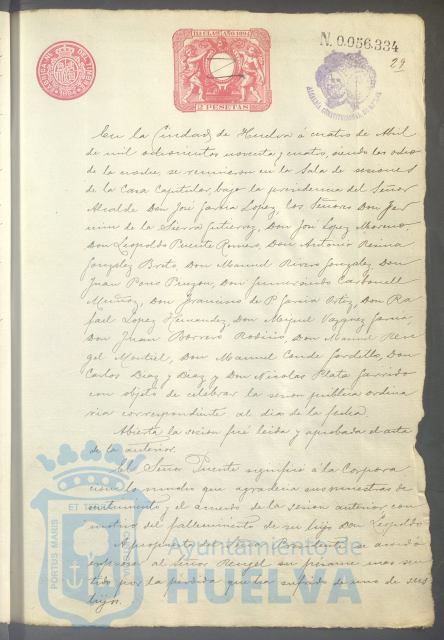 FABRICA DEL TIMBRE
11ª CLASE AÑO 1894
2 PESETAS
N. 0.056.334
29
ALCALDIA CONSTITUCIONAL DE HUELVA
En la Ciudad de Huelva á cuatro de Abril
de mil ochocientos noventa y cuatro, siendo las ocho
de la noche, se reunieron en la Sala de sesiones
de la Casa Capitular, bajo la presidencia del Señor
Alcalde Don José García Lopez, los Señores Don Fer
min de la Sierra Gutierrez, Don José Lopez Moreno,
Don Leopoldo Puente Romero, Don Antonio Reina
Gonzalez Don Manuel Rivero Gonzalez, Don
Juan Pons Don Gumersindo Carbonell
Muñoz, Don Francisco de P. García Ortiz, Don Ra
fael Lopez Hernandez, Don Miguel Vazquez García,
Don Juan Borrero Don Manuel Ren
gel Montiel, Don Manuel Conde Gordillo, Don
Carlos Diaz y Diaz y Don Nicolas Plata Garrido
con objeto de celebrar la sesion publica ordina
ria correspondiente al dia de la fecha.
Abierta la sesion fué leida y aprobada el acta
de la anterior.
El Señor Puente significó á la Corpora
cion lo mucho que agradecia sus muestras de
sentimiento y el acuerdo de la sesion anterior con
motivo del fallecimiento de su hijo Don Leopoldo
A propuesta del Señor se acordó
expresar al señor Rengel su pesame mas sen
tido por la perdida que ha sufrido de uno de sus
hijos.
PORTUS MARIS ET
Ayuntamiento de
HUELVA